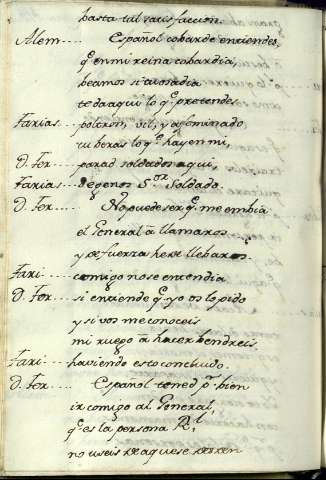 hasta tal satisfaccion.
Alem.... Español cobarde entiendes,
q.e en mi reina cobardia,
beamos si tu osadia
te da aqui lo q.e pretendes.
Farias... poltron, vil, y afeminado
tu beras lo q.e hay en mi,
D. Fer.... parad soldados aqui,
Farias... Dejenos S.or Soldado.
D. Fer.... No puede ser q.e me embia
el General â llamaros
y de fuerza he de llebaros.
Fari.... comigo no se entendia
D. Fer.... si entiende q.e yo os lo pido
y si vos me conoceis
mi ruego â hacer bendreis.
Fari.... haviendo esto concluido.
D. Fer.... Español tened p.r bien
ir comigo al General,
q.e es la persona R.l
no useis de aquese desden